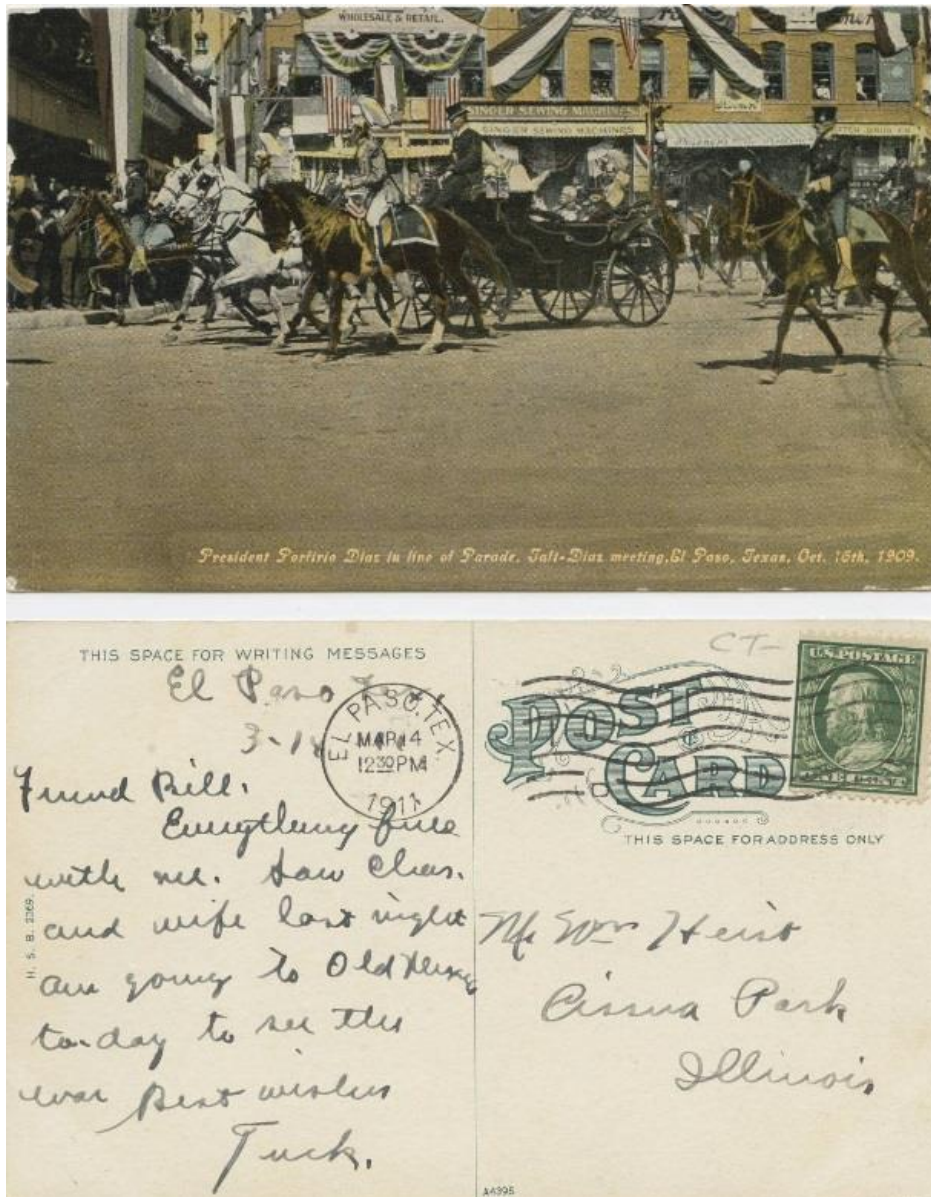 WHOLESALE & RETAIL.
SINGER SEWING MACHINES
SINGER SEWING MACHINES
President Porfirio Diaz in line of Parade, Taft-Diaz meeting, El Paso, Texas, Oct. 16th, 1909.
THIS SPACE FOR WRITING MESSAGES
El Paso
3-14
EL PASO, TEX.
MAR 14
12 30 PM
1911
Friend Bill.
Everything fine
with me. Saw Chas.
and wife last night
am going to Old Mexico
to-day to see the
war Best wishes
Tuck.
H. S. B. 2369.
CT-
U.S. POSTAGE
POST
CARD
THIS SPACE FOR ADDRESS ONLY
Mr Wm Heist
Cissna Park
Illinois
A4395